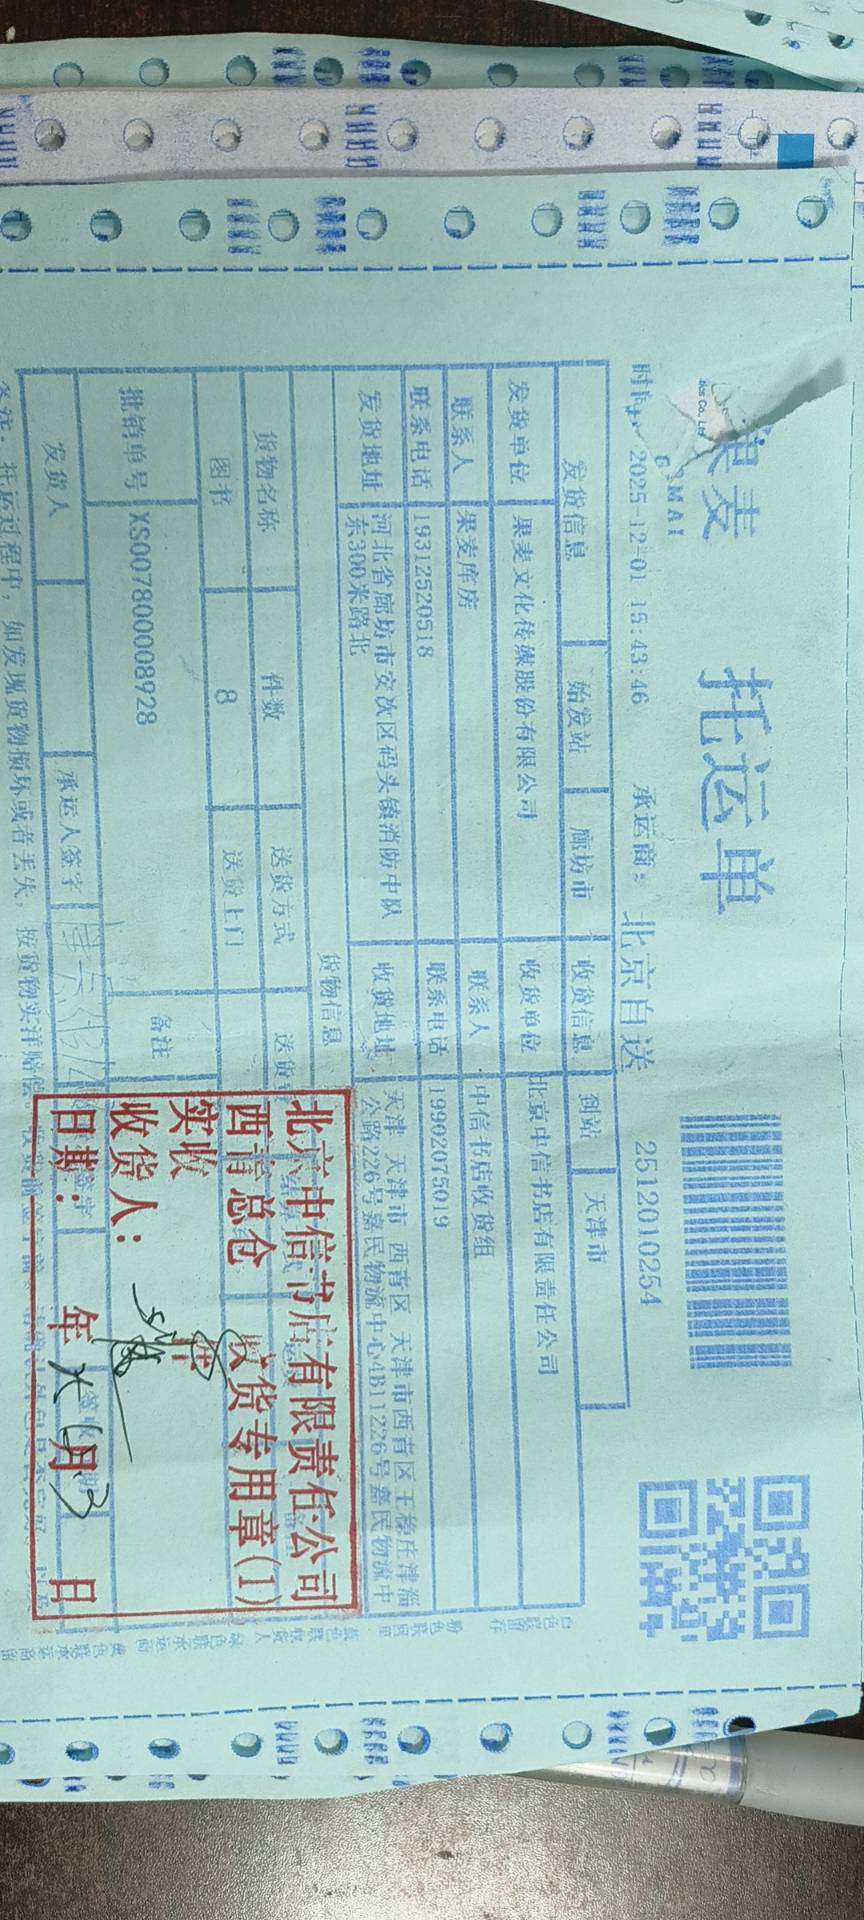 果麦
GUOMAI
托运单
时间: 2025-12-01 15:43:46 承运商: 北京自送 2512010254
发货信息 始发站 廊坊市 收货信息 到站 天津市
发货单位 果麦文化传媒股份有限公司 收货单位 北京中信书店有限责任公司
联系人 果麦库房 联系人 中信书店收货组
联系电话 19312520518 联系电话 19902075019
发货地址 河北省廊坊市安次区码头镇消防中队东300米路北 收货地址 天津 天津市 西青区 天津市西青区王稳庄津淄公路226号嘉民物流中心4B11226号嘉民物流中
货物信息
货物名称 件数 送货方式
图书 8 送货上门
批销单号 XS007800008928 备注
发货人 承运人签字
备注: 托运过程中, 如发现货物损坏或者丢失, 按货物实洋赔偿。
北京中信书店有限责任公司
西青总仓 收货专用章(1)
实收 件
收货人:
日期: 年 月3 日